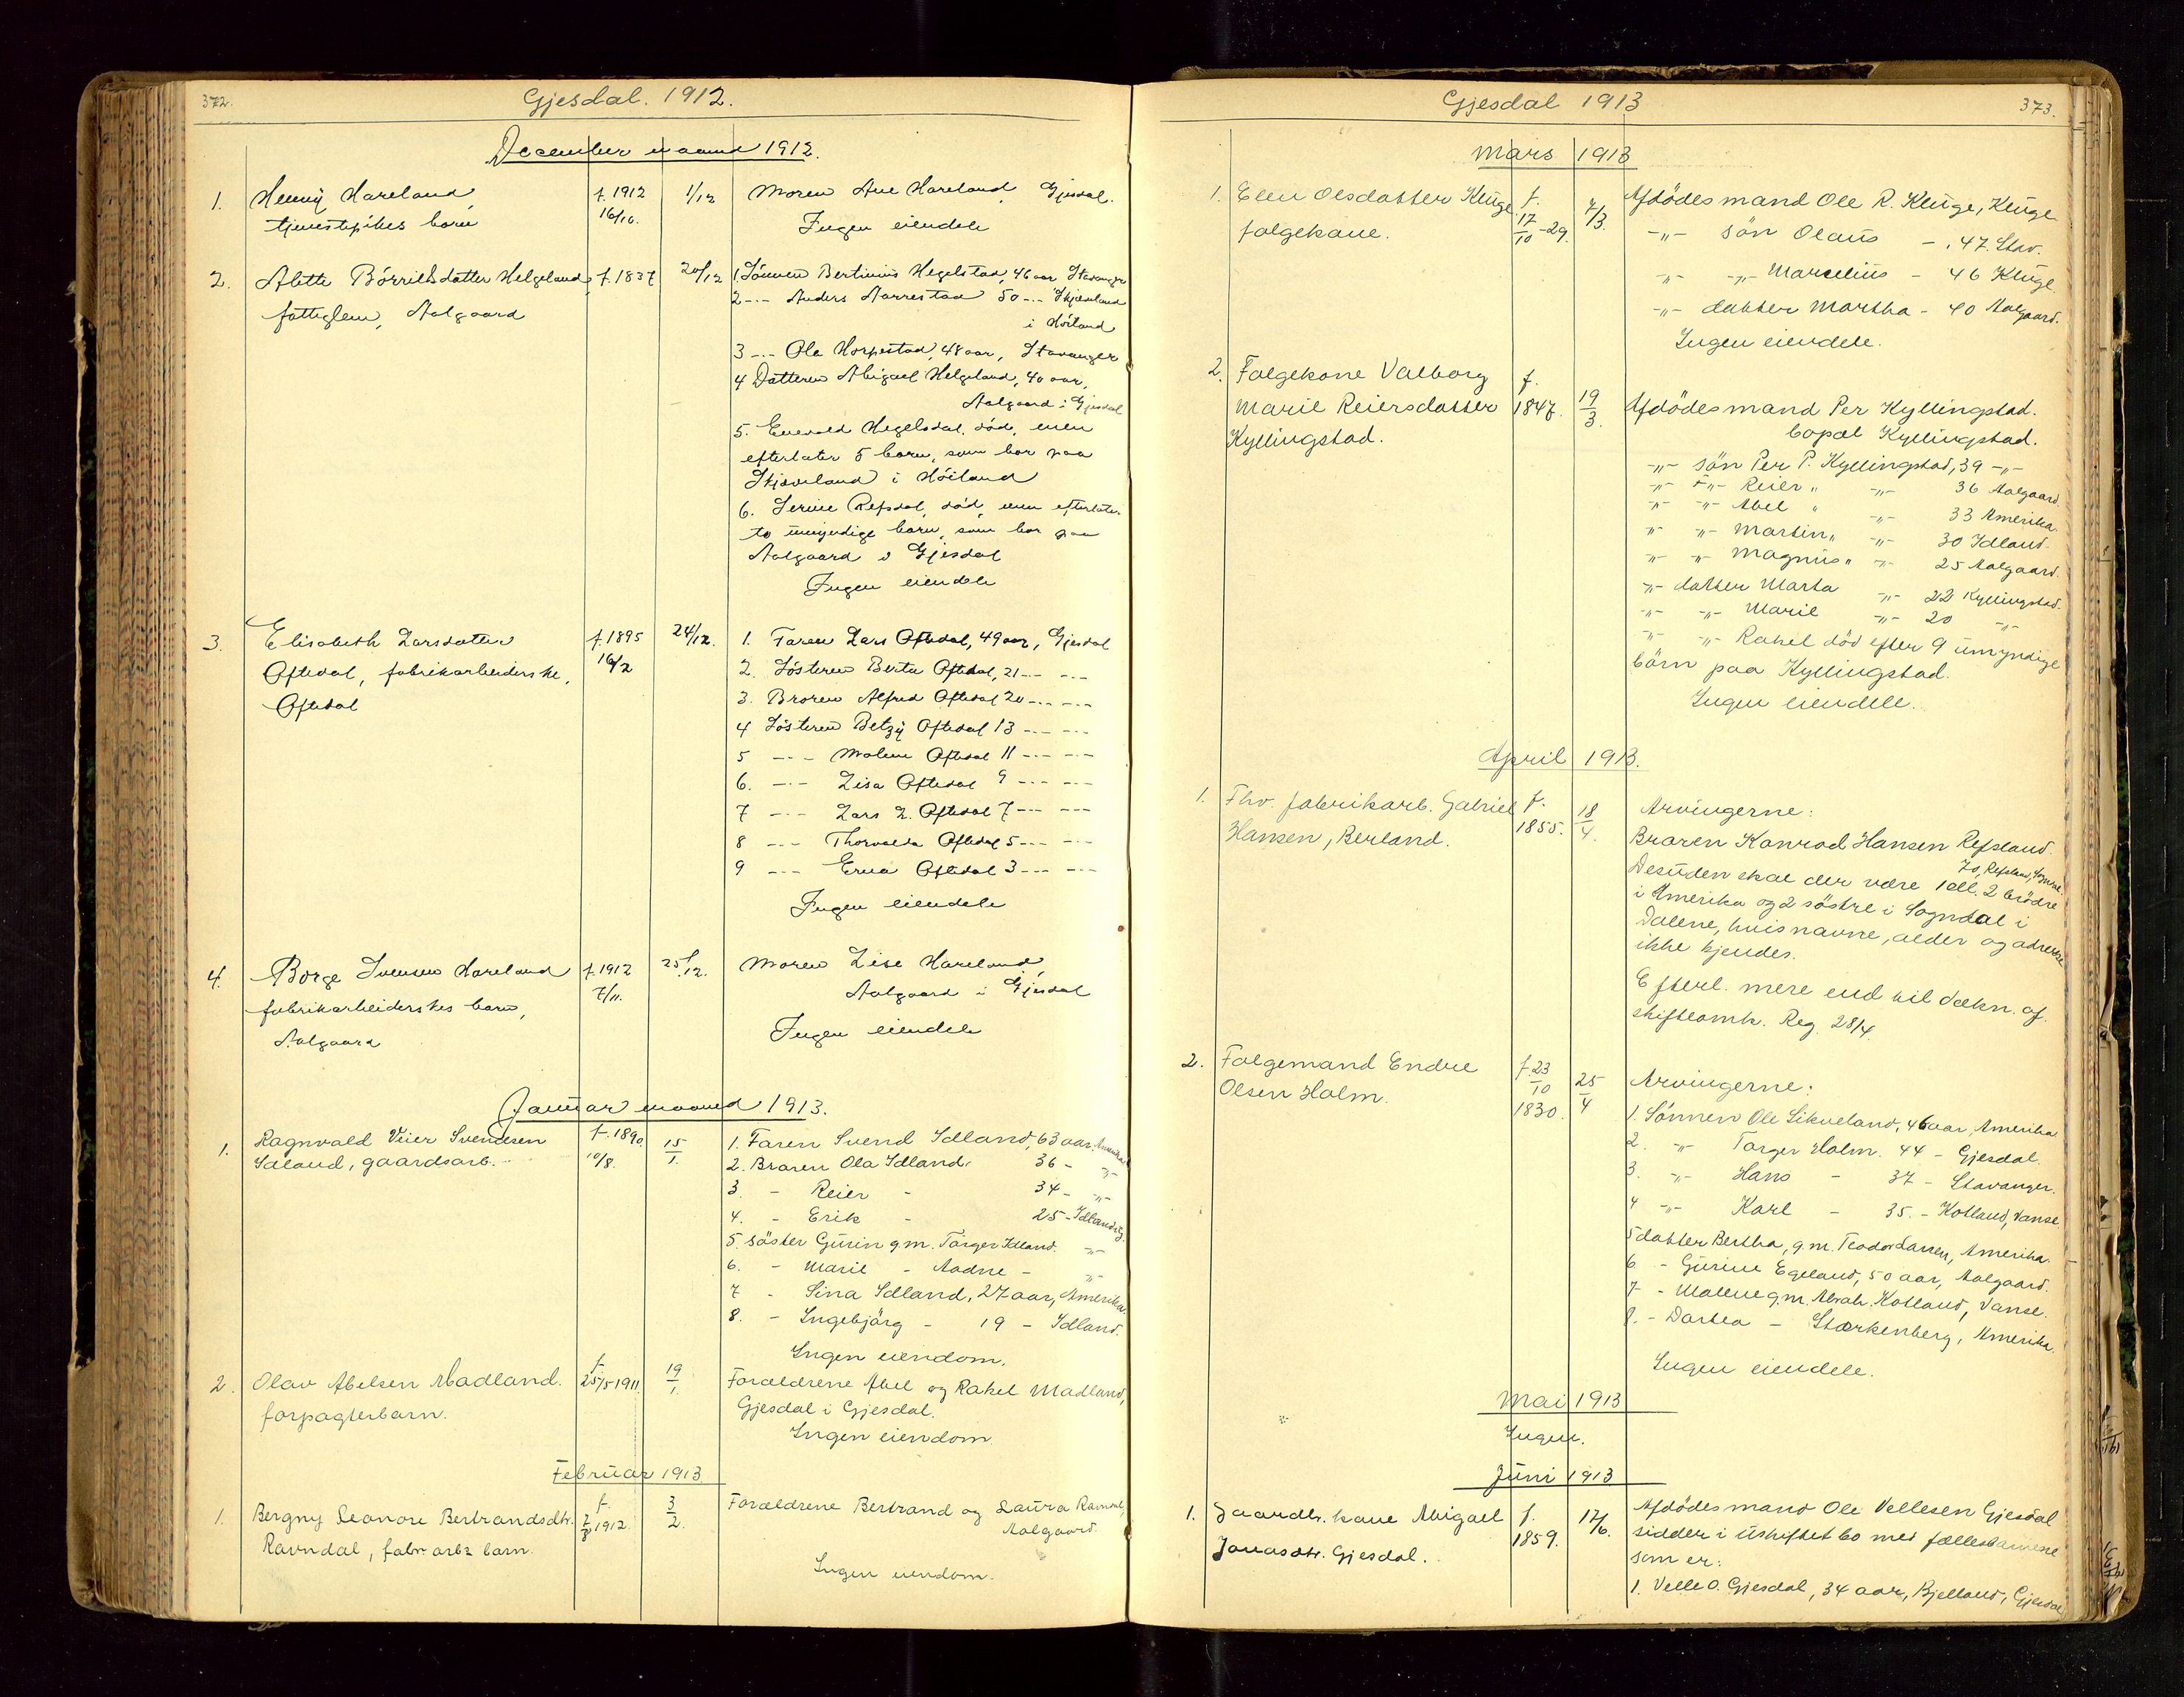 372.
Gjesdal. 1912.
December maaned 1912.
1. Henny Hareland, f. 1912 1/12 Moren Ane Hareland, Gjesdal.
tjenestepikes barn 16/10. Ingen eiendele
2. Alette Börrildsdatter Helgeland f. 1837 20/12 1. Sönnen Bertinius Hegelstad, 46 aar Stavanger
fattiglem, Aalgaard 2 -"- Anders Aarrestad 50 -"- Skjæveland
i Höiland
3 -"- Ole Horpestad, 48 aar, Stavanger
4 Datteren Abigael Helgeland, 40 aar,
Aalgaard i Gjesdal
5. Enevald Hegelsdal, död, men
efterlater 5 barn, som bor paa
Skjæveland i Höiland
6. Serine Refsdal, död, men efterlater
to umyndige barn, som bor paa
Aalgaard i Gjesdal
Ingen eiendele
3. Elisabeth Larsdatter f. 1895 24/12. 1. Faren Lars Oftedal, 49 aar, Gjesdal
Oftedal, fabrikarbeiderske, 16/2 2. Sösteren Berta Oftedal, 21 -"- -"-
Oftedal 3. Broren Alfred Oftedal 20 -"- -"-
4 Sösteren Betzy Oftedal 13 -"- -"-
5 -"- Malene Oftedal 11 -"- -"-
6. -"- Lisa Oftedal 9 -"- -"-
7 -"- Lars L. Oftedal 7 -"- -"-
8 -"- Thorvalda Oftedal 5 -"- -"-
9 -"- Erna Oftedal 3 -"- -"-
Ingen eiendele
4. Borge Svensen Hareland f. 1912 25/12. Moren Lise Hareland,
fabrikarbeiderskes barn, 7/11. Aalgaard i Gjesdal
Aalgaard Ingen eiendele
Januar maaned 1913.
1. Ragnvald Veier Svendsen f. 1890. 15/1. 1. Faren Svend Idland, 63 aar, Amerika
Idland, gaardsarb. 10/8. 2. Broren Ola Idland. 36 - -"-
3. - Reier - 34 - -"-
4. - Erik - 25 - Idland
5. söster Gurin g.m. Torger Idland. -"-
6. - Marie - Aadne - -"-
7 - Sina Idland, 27 aar, Amerika
8. - Ingebjörg - 19 - Idland.
Ingen eiendom.
2. Olav Abelsen Madland. f. 25/5 1911. 19/1. Forældrene Abel og Rakel Madland,
forpagterbarn. Gjesdal i Gjesdal.
Ingen eiendom.
Februar 1913.
1. Bergny Leonore Bertrandsdtr. f. 7/8 1912. 3/2. Forældrene Bertrand og Laura Ravndal,
Ravndal, fabr. arbs barn. Aalgaard.
Ingen eiendom.
373.
Gjesdal 1913
Mars 1913
1. Elen Olsdatter Kluge f. 17/10 -29. 7/3. Afdödes mand Ole R. Kluge, Kluge
folgekone. -"- sön Olaus - , 47. Stav.
-"- -"- Marselius - 46 Kluge.
-"- datter Martha - 40 Aalgaard.
Ingen eiendele.
2. Folgekone Valborg f.
Marie Reiersdatter 1847. 19/3. Afdödes mand Per Kyllingstad.
Kyllingstad. bopæl Kyllingstad.
-"- sön Per P. Kyllingstad, 39 -"-
-"- -"- Reier " -"- 36 Aalgaard
-"- -"- Abel " -"- 33 Amerika.
" -"- Martin " -"- 30 Idland.
" -"- Magnus " -"- 25 Aalgaard.
-"- datter Marta -"- 22 Kyllingstad.
-"- -"- Marie -"- 20 -"-
-"- -"- Rakel död efter 9 umyndige
börn paa Kyllingstad.
Ingen eiendele.
April 1913.
1. Fhv. fabrikarb. Gabriel f. 18/4. Arvingerne:
Hansen, Berland. 1855. Broren Konrad Hansen Refsland.
70, Refsland, Sogndal.
Desuden skal der være 1 ell. 2 brödre
i Amerika og 2 söstre i Sogndal i
Dalene, hvis navne, alder og adresse
ikke kjendes.
Efterl. mere end til dækn. af
skifteomk. Reg. 28/4.
2. Folgemand Endre f. 23/10 25/4 Arvingerne:
Olsen Holm. 1830. 1. Sönnen Ole Sikveland, 46 aar, Amerika
2. -"- Torger Holm. 44 - Gjesdal.
3. -"- Hans - 37 - Stavanger.
4 -"- Karl - 35. - Kotland, Vanse
5 datter Bertha, g.m. Teodor Larsen, Amerika.
6 - Gurine Egeland, 50 aar, Aalgaard.
7 - Malene g.m. Abrah. Kotland, Vanse.
8. - Dortea - Storkenberg, Amerika.
Ingen eiendele.
Mai 1913
Ingen.
Juni 1913
1. Gaardbr. kone Abigael f. 17/6. Afdödes mand Ole Vellesen Gjesdal
Jonasdtr. Gjesdal. 1859. sidder i uskiftet bo med fællesbarnene
som er:
1. Velle O. Gjesdal, 34 aar, Bjelland, Gjesdal